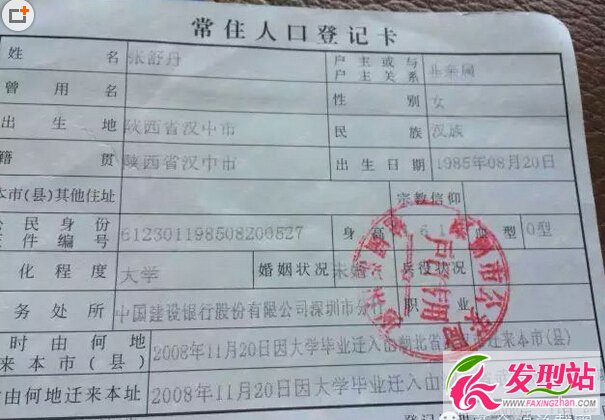 常住人口登记卡
姓 名 张舒丹 户主或与户主关系 非亲属
曾用名 性别 女
出生地 陕西省汉中市 民族 汉族
籍贯 陕西省汉中市 出生日期 1985年08月20日
本市(县)其他住址 宗教信仰
公民身份证件编号 612301198508200527 身高 血型 O型
化程度 大学 婚姻状况 未婚 兵役状况
务处所 中国建设银行股份有限公司深圳市分行 职业
时由何地来本市(县) 2008年11月20日因大学毕业迁入由湖北省 迁来本市(县)
由何地迁来本址 2008年11月20日因大学毕业迁入由
登记
发型站
www.FAXINGZHAN.com